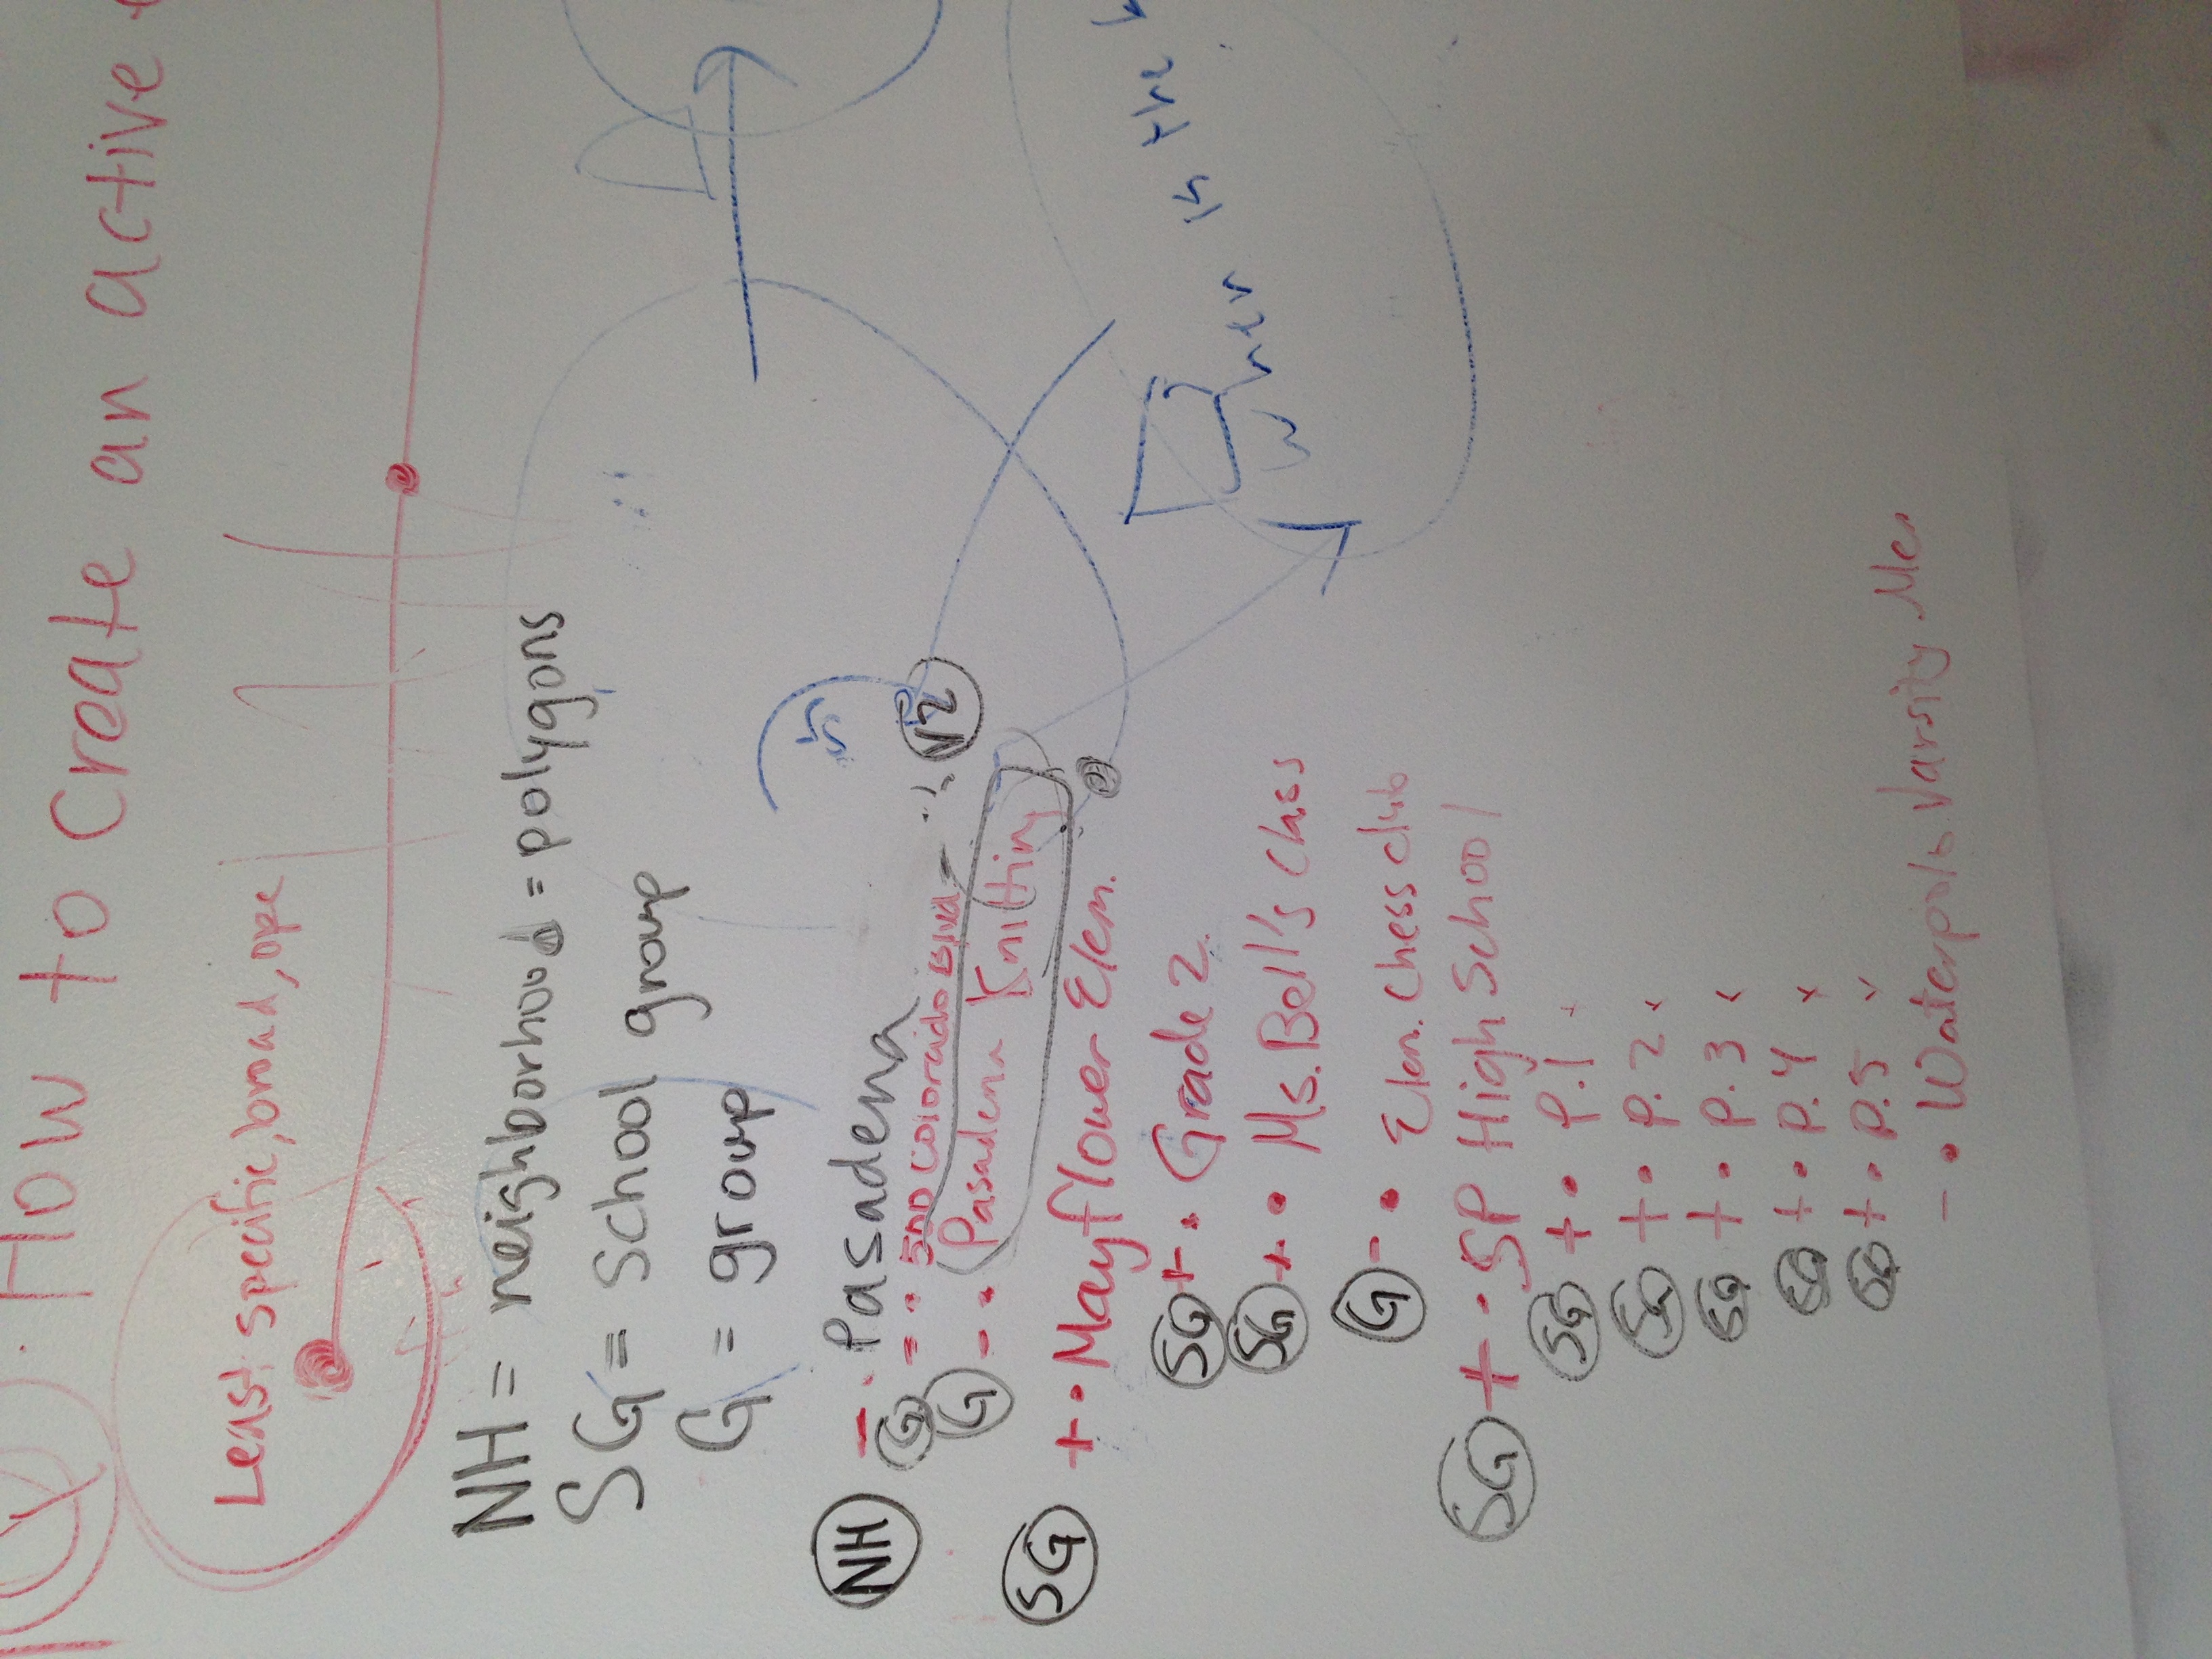 How to create an active
Least specific, broad, ope
NH = neighborhood = polygons
SG = School group
G = group
NH - • Pasadena
G - • 500 Colorado Blvd - V2
G - • Pasadena Knitting
SG + • Mayflower Elem.
SG + • Grade 2.
SG + • Ms. Bell's Class
G - • Elem. Chess club
SG + • SP High School
SG + • P.1
SG + • P.2
SG + • P.3
SG + • P.4
SG + • P.5
- • Waterpolo Varsity Men
when is the